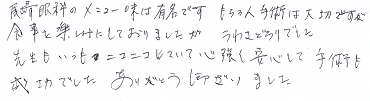 眼科のメニュー味は有名です もちろん手術は大切ですが
食事を楽しみにしておりましたが うわさどおりでした
先生もいつもニコニコしていて心強く安心して手術も
成功でした ありがとうございました